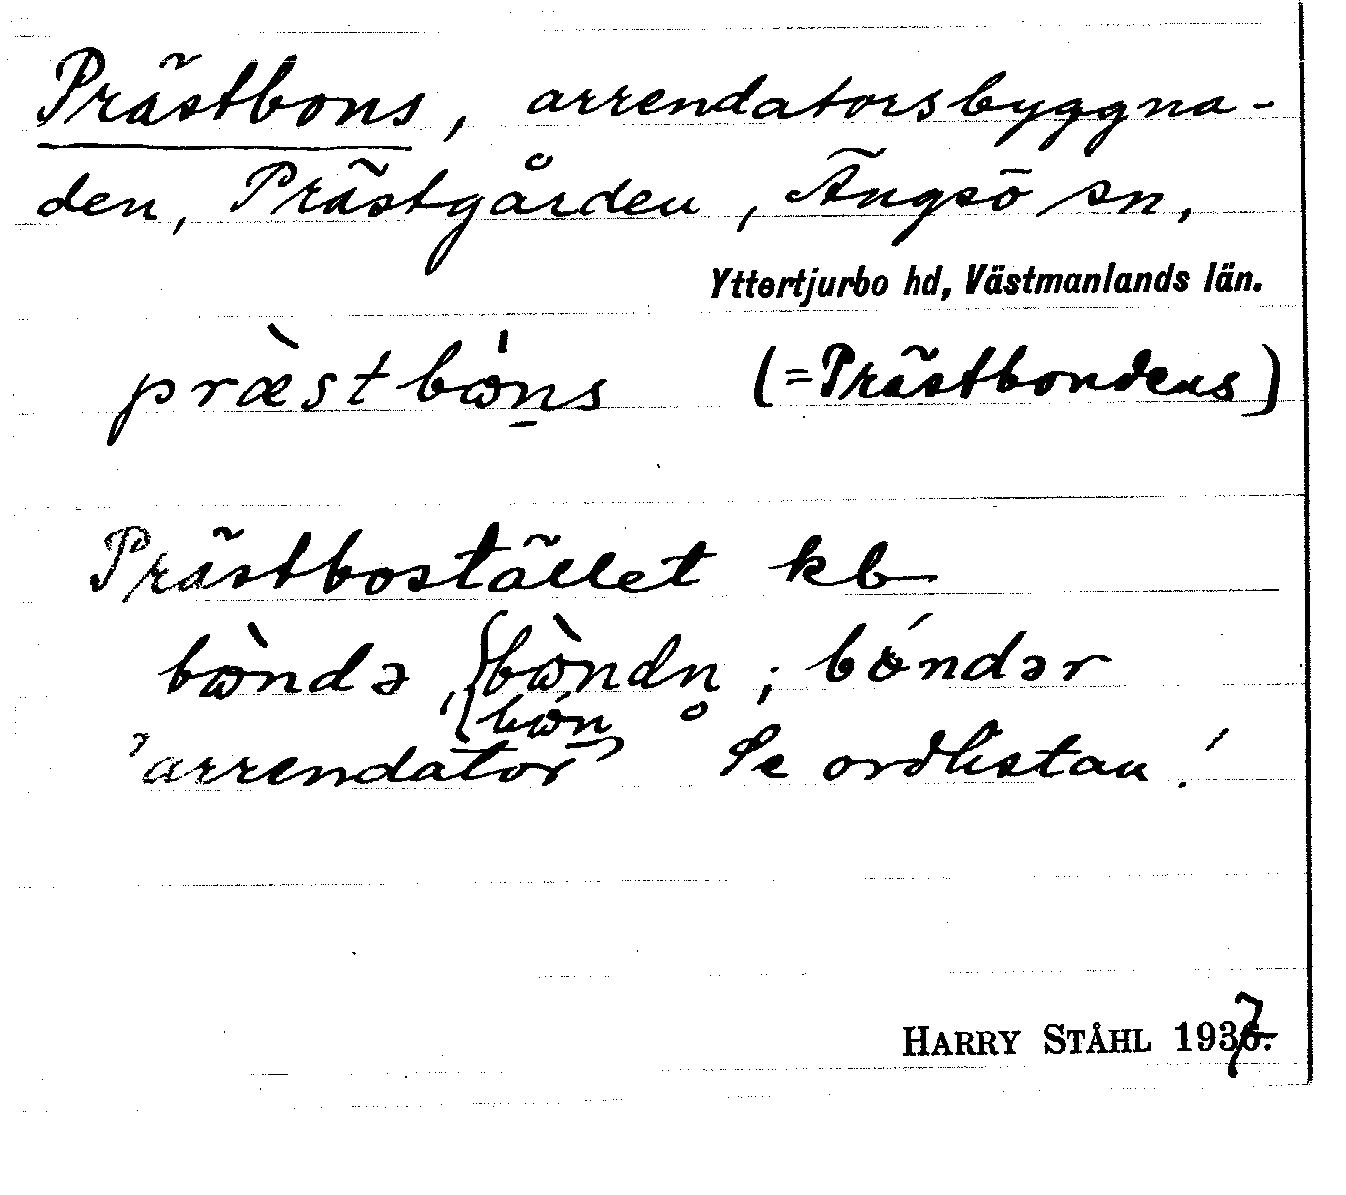 Prästbons, arrendatorsbyggna-
den, Prästgården, Ängsö sn,
Yttertjurbo hd, Västmanlands län.
præ̀stbɷ́n̠s (=Prästbondens)
Prästbostället kb
bɷ̀ndə, {bɷ̀ndn̥ ; bǿndər
{bɷ́n̠
'arrendator' Se ordlistan!
HARRY STÅHL 1937.